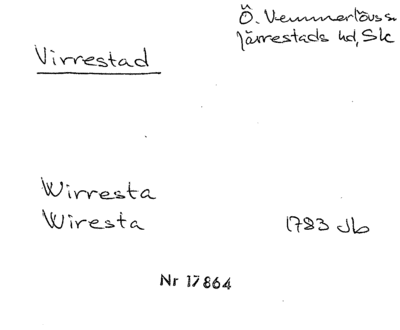 Ö. Vemmerlövs sn
Järrestads hd, Sk
Virrestad
Wirresta
Wiresta 1783 Jb
Nr 17864